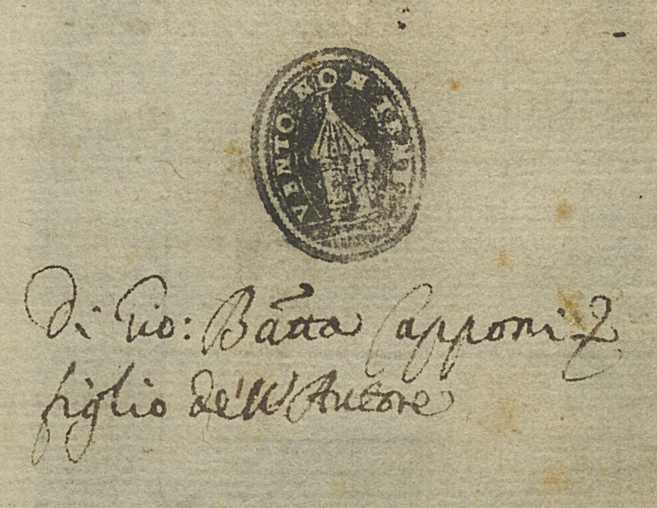 VENTO NON
Di Gio: Batta Capponi
figlio dell'Autore